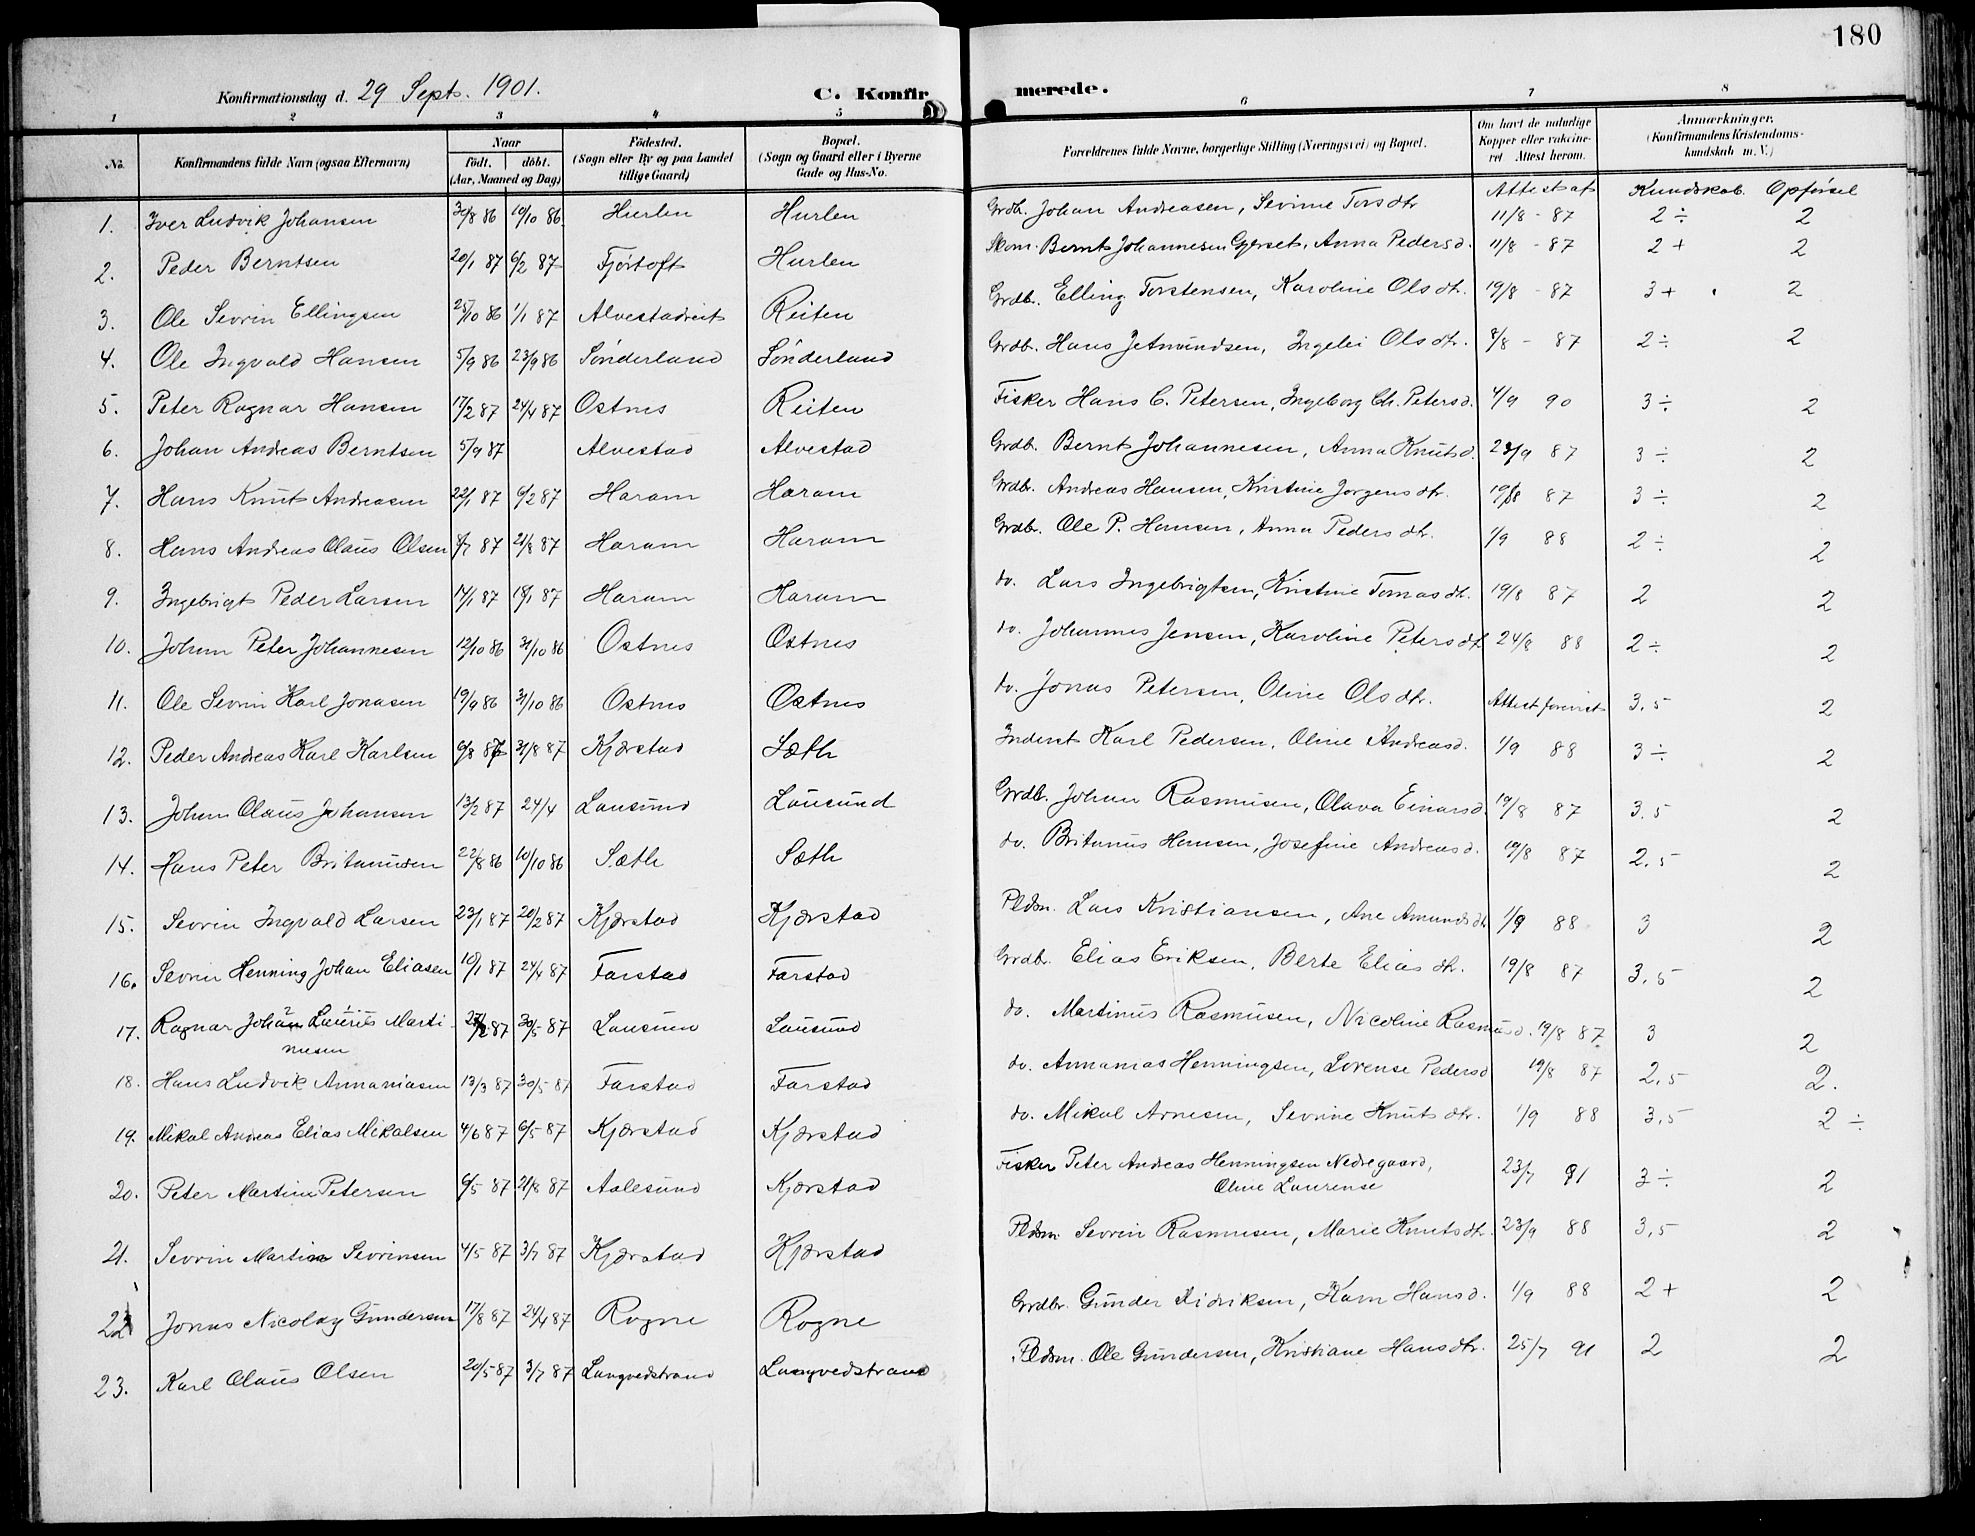 180
Konfirmationsdag d. 29 Sept. 1901. C. Konfirmerede.
1 2 3 4 5 6 7 8
No. Konfirmandens fulde Navn (ogsaa Efternavn) Naar født. døbt. (Aar, Maaned og Dag) Fødested. (Sogn eller By og paa Landet tillige Gaard) Bopæl. (Sogn og Gaard eller i Byerne Gade og Hus-No. Forældrenes fulde Navne, borgerlige Stilling (Næringsvei) og Bopæl. Om havt de naturlige Kopper eller vaccineret Attest herom. Anmærkninger. (Konfirmandens Kristendomskundskab m. V.)
Attest af Kundskab. Opførsel
1. Iver Ludvik Johansen 30/8 86 10/10 86 Hurlen Hurlen Grdb. Johan Andreasen, Sevine Torsdtr 11/8 - 87 2 ÷ 2
2. Peder Berntsen 20/1 87 6/2 87 Fjørtoft Hurlen Skom. Bernt Johannesen Gjerset, Anna Pedersd. 11/8 - 87 2 + 2
3. Ole Sevrin Ellingsen 25/10 86 1/1 87 Alvestadreit Reiten Grdb. Elling Torstensen, Karoline Olsdtr. 19/8 - 87 3 + 2
4. Ole Ingvald Hansen 5/9 86 23/9 86 Sønderland Sønderland Grdb. Hans Jetmundsen, Ingelei Olsdtr. 8/8 - 87 2 ÷ 2
5. Peter Ragnar Hansen 17/2 87 24/4 87 Ostnes Reiten Fisker Hans C. Petersen, Ingeborg Ch. Petersd. 4/9 90 3 ÷ 2
6. Johan Andreas Berntsen 5/9 87 Alvestad Alvestad Grdb. Bernt Johannesen, Anna Knutsd. 23/9 87 3 ÷ 2
7. Hans Knut Andreasen 22/1 87 6/2 87 Haram Haram Grdb. Andreas Hansen, Kristine Jorgensdtr. 19/8 87 3 ÷ 2
8. Hans Andreas Claus Olsen 8/7 87 21/8 87 Haram Haram Grdb. Ole P. Hansen, Anna Pedersdtr. 1/9 88 2 ÷ 2
9. Ingebrigt Peder Larsen 14/1 87 18/1 87 Haram Haram do. Lars Ingebrigtsen, Kristine Tomasdtr. 19/8 87 2 2
10. Johan Peter Johannesen 12/10 86 31/10 86 Ostnes Ostnes do. Johannes Jensen, Karoline Petersdtr 24/8 88 2 ÷ 2
11. Ole Sevrin Karl Jonasen 19/9 86 31/10 86 Ostnes Ostnes do. Jonas Petersen, Oline Olsdtr. Attest forevist 3,5 2
12. Peder Andreas Karl Karlsen 6/8 87 31/8 87 Kjærstad Sæth Inderst Karl Pedersen, Oline Andreasd. 1/9 88 3 ÷ 2
13. Johan Claus Johansen 13/2 87 24/4 Lausund Lausund Grdb. Johan Rasmusen, Olava Einarsd. 19/8 87 3.5 2
14. Hans Peter Britanusen 22/8 86 10/10 86 Sæth Sæth do. Britanus Hansen, Josefine Andreasd. 19/8 87 2.5 2
15. Sevrin Ingvald Larsen 23/1 87 20/2 87 Kjærstad Kjærstad Pldsm. Lars Kristiansen, Ane Amundsdtr. 1/9 88 3 2
16. Sevrin Henning Johan Eliasen 10/1 87 24/4 87 Farstad Farstad Grdbr. Elias Eriksen, Berte Eliasdtr. 19/8 87 3,5 2
17. Ragnar Johan Laurits Martinusen 87 30/5 87 Lausund Lausund do. Martinus Rasmusen, Nicoline Rasmusd. 19/8 87 3 2
18. Hans Ludvik Annaniasen 13/3 87 30/5 87 Farstad Farstad do. Annanias Henningsen, Lovense Pedersd 19/8 87 2,5 2.
19. Mikal Andreas Elias Mikalsen 4/6 87 6/5 87 Kjærstad Kjærstad do. Mikal Arnesen, Sevrine Knutsdtr. 1/9 88 3,5 2 ÷
20. Peter Martin Petersen 6/5 87 21/8 87 Aalesund Kjærstad Fisker Peter Andreas Henningsen Nedregaard, Oline Laurense 23/7 91 3 ÷ 2
21. Sevrin Martin Sevrinsen 4/5 87 3/7 87 Kjærstad Kjærstad Pldsm. Sevrin Rasmusen, Marie Knutsdtr. 23/9 88 3,5 2
22 Jonas Nicolay Gundersen 17/8 87 24/4 87 Rogne Rogne Grdbr. Gunder Didriksen, Karn Hansd. 1/9 88 2 + 2
23. Karl Claus Olsen 20/5 87 3/7 87 Langvedstrand Langvedstrand Pldsm. Ole Gundersen, Kristiane Hansdtr. 25/7 91 2 2